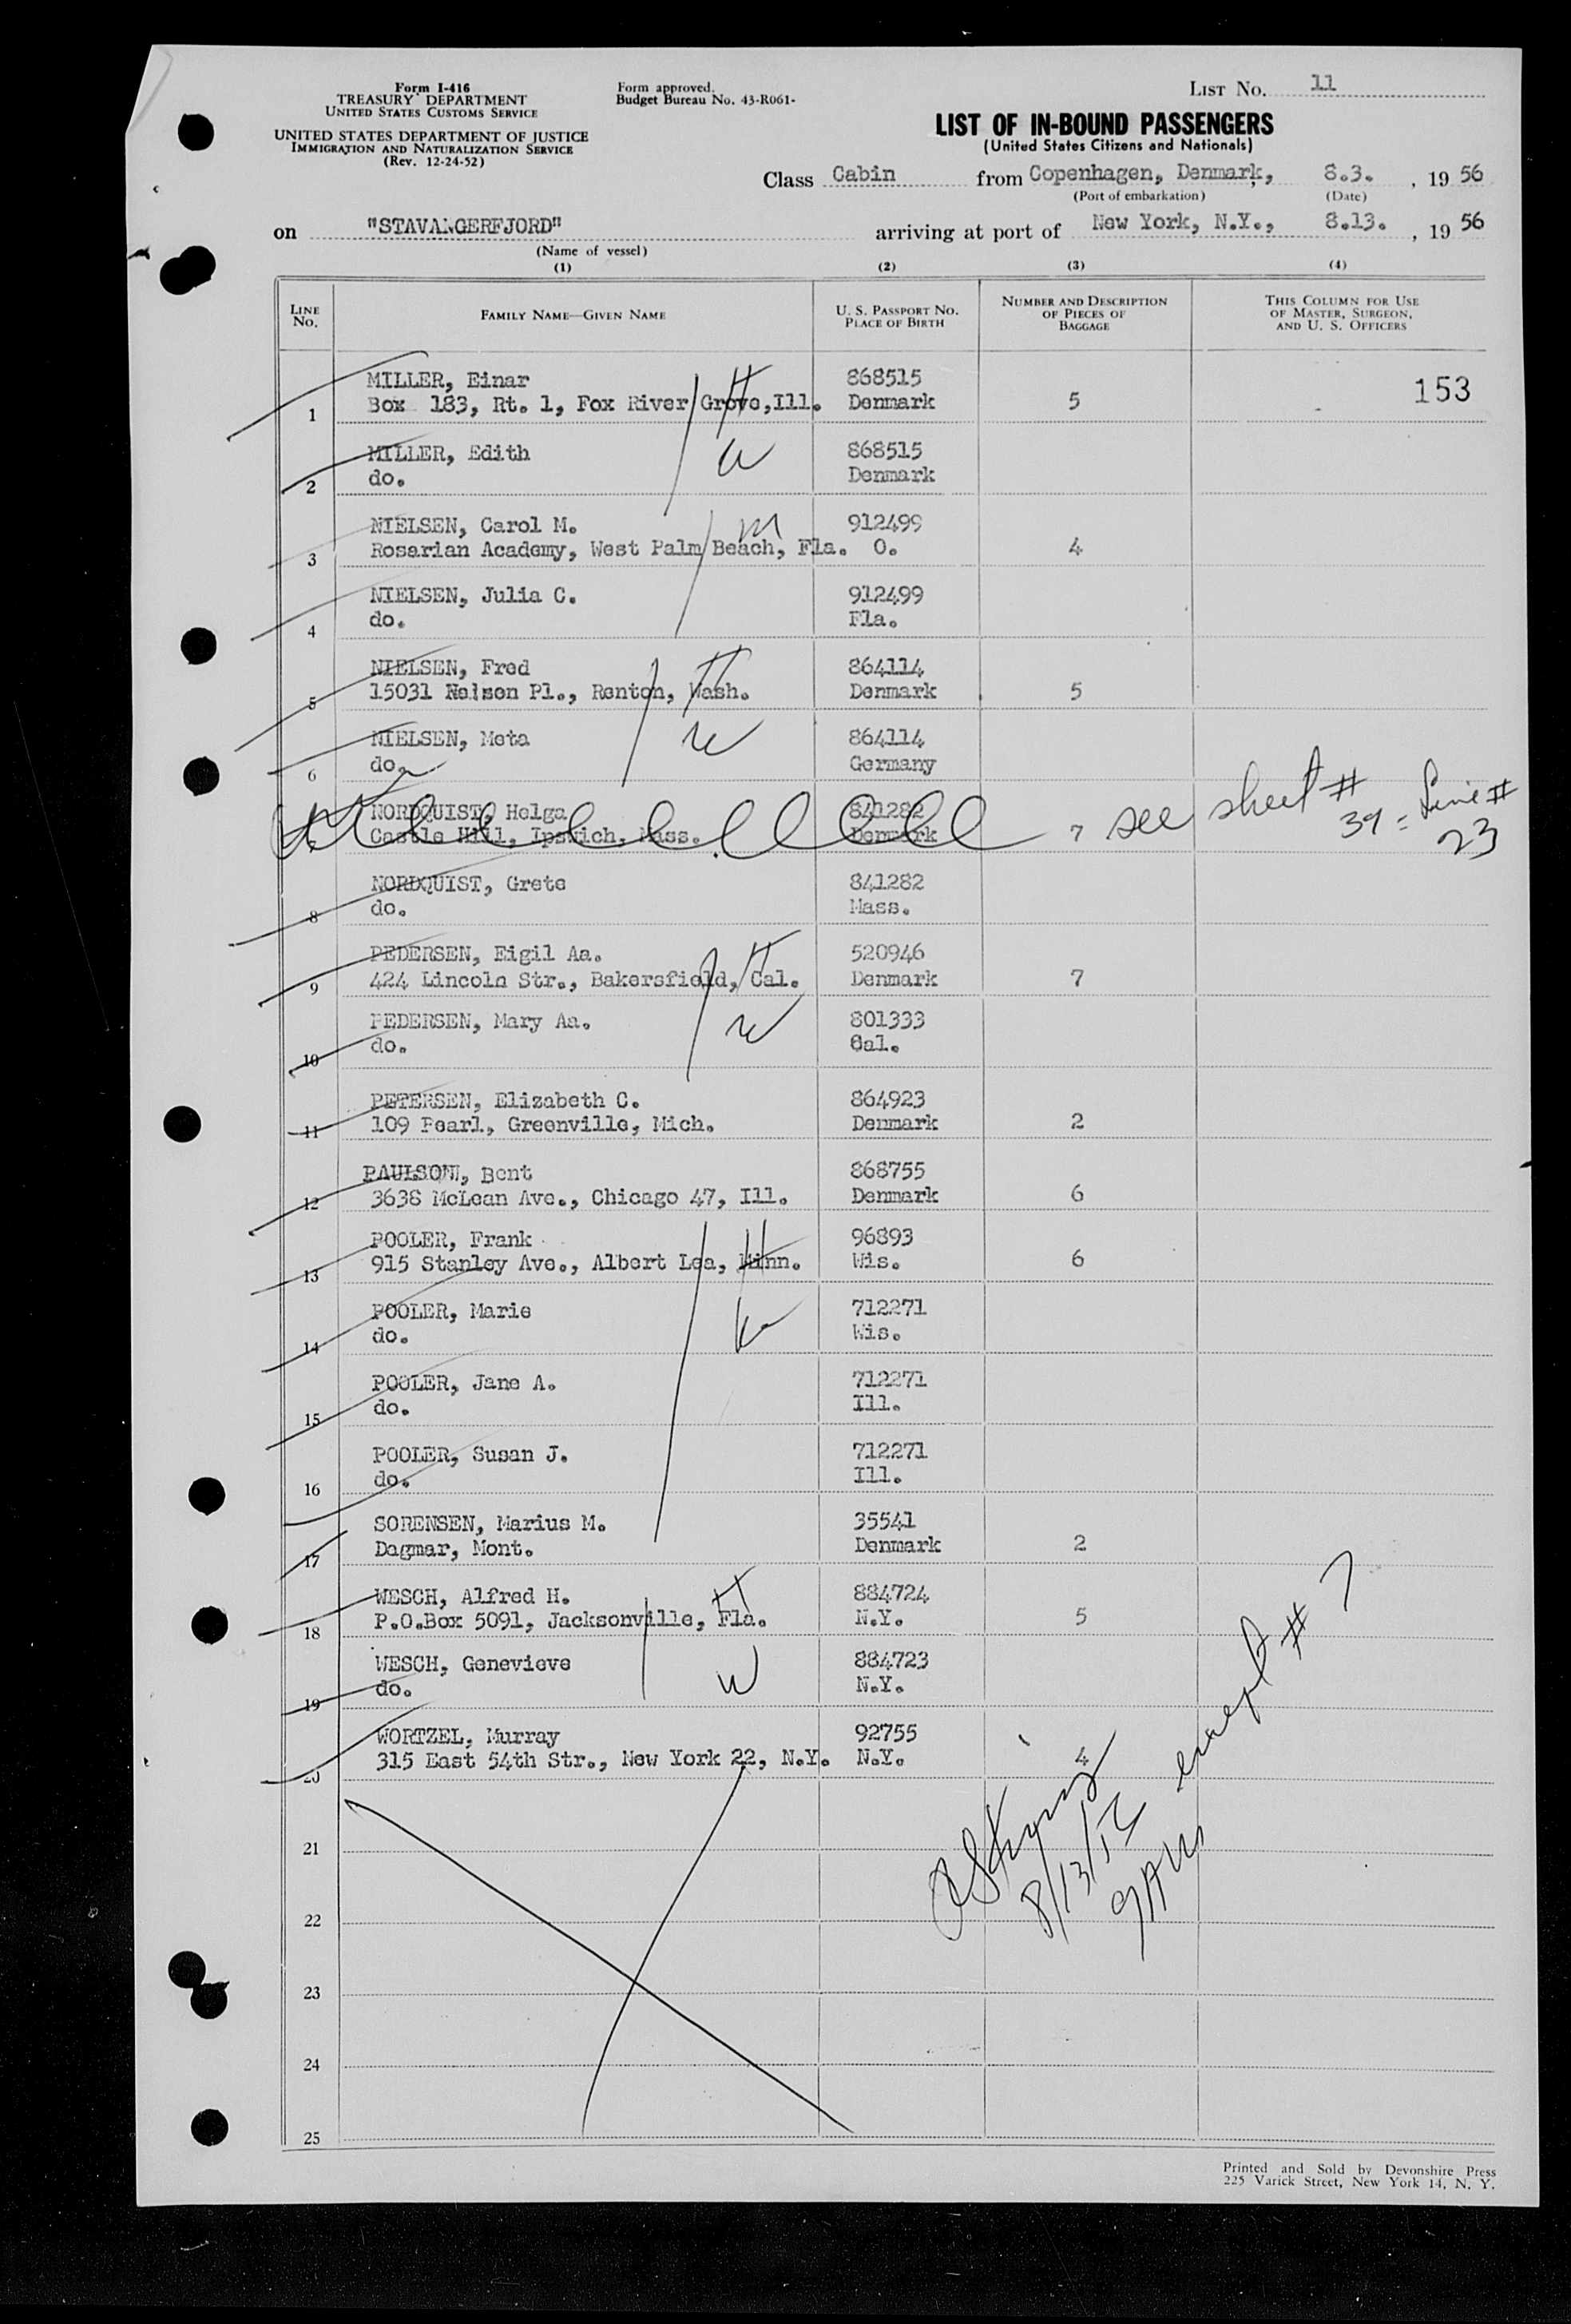 Form I-416
TREASURY DEPARTMENT
UNITED STATES CUSTOMS SERVICE
UNITED STATES DEPARTMENT OF JUSTICE
IMMIGRATION AND NATURALIZATION SERVICE
(Rev. 12-24-52)
Form approved.
Budget Bureau No. 43-R061-
LIST No. 11
LIST OF IN-BOUND PASSENGERS
(United States Citizens and Nationals)
Class Cabin from Copenhagen, Denmark, 8.3. , 19 56
(Port of embarkation) (Date)
on "STAVANGERFJORD" arriving at port of New York, N.Y., 8.13. , 19 56
(Name of vessel)
(1) (2) (3) (4)
LINE No. FAMILY NAME—GIVEN NAME U. S. PASSPORT No. PLACE OF BIRTH NUMBER AND DESCRIPTION OF PIECES OF BAGGAGE THIS COLUMN FOR USE OF MASTER, SURGEON, AND U. S. OFFICERS
MILLER, Einar H 868515 153
1 Box 183, Rt. 1, Fox River Grove,Ill. Denmark 5
MILLER, Edith W 868515
2 do. Denmark
NIELSEN, Carol M. M 912499
3 Rosarian Academy, West Palm Beach, Fla. O. 4
NIELSEN, Julia C. 912499
4 do. Fla.
NIELSEN, Fred H 864114
5 15031 Nelson Pl., Renton, Wash. Denmark 5
NIELSEN, Meta W 864114
6 do. Germany
NORDQUIST, Helga 841282 see sheet # 39 = Line # 23
7 Castle Hill, Ipswich, Mass. Denmark 7
NORDQUIST, Grete 841282
8 do. Mass.
PEDERSEN, Eigil Aa. H 520946
9 424 Lincoln Str., Bakersfield, Cal. Denmark 7
PEDERSEN, Mary Aa. W 801333
10 do. Cal.
PETERSEN, Elizabeth C. 864923
11 109 Pearl, Greenville, Mich. Denmark 2
PAULSON, Bent 868755
12 3638 McLean Ave., Chicago 47, Ill. Denmark 6
POOLER, Frank H 96893
13 915 Stanley Ave., Albert Lea, Minn. Wis. 6
POOLER, Marie W 712271
14 do. Wis.
POOLER, Jane A. 712271
15 do. Ill.
POOLER, Susan J. 712271
16 do. Ill.
SORENSEN, Marius M. 35541
17 Dagmar, Mont. Denmark 2
WESCH, Alfred H. H 884724
18 P.O.Box 5091, Jacksonville, Fla. N.Y. 5
WESCH, Genevieve W 884723
19 do. N.Y.
WORTZEL, Murray 92755
20 315 East 54th Str., New York 22, N.Y. N.Y. 4
except # 7
8/13/56
21
22
23
24
25
Printed and Sold by Devonshire Press
225 Varick Street, New York 14, N. Y.